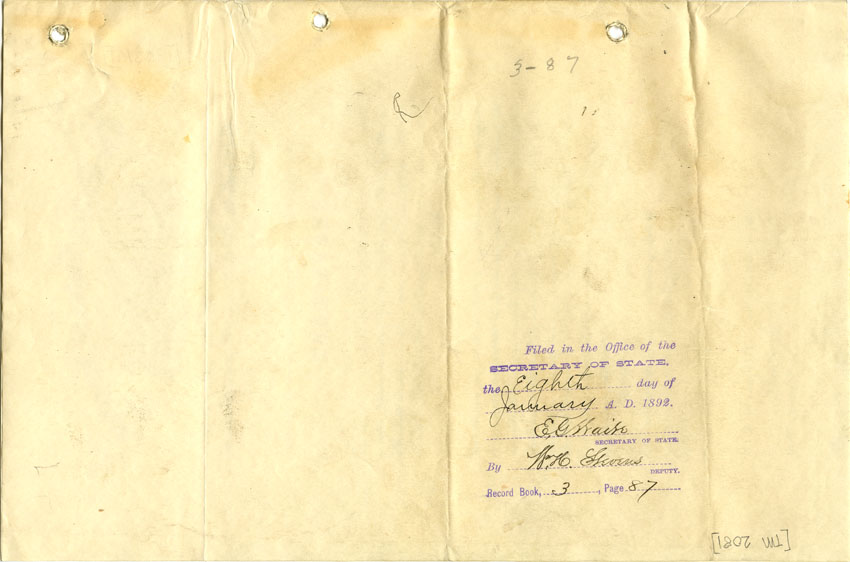 3-87
Filed in the Office of the
SECRETARY OF STATE,
the Eighth day of
January A. D. 1892.
E G Waite
SECRETARY OF STATE.
By Wm H. Stevens
DEPUTY.
Record Book, 3, Page 87
[TM 2081]